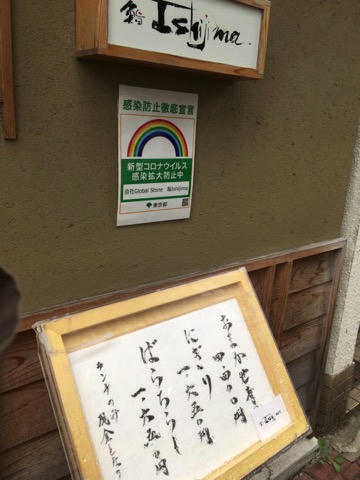 鮨 Ishijima
感染防止徹底宣言
新型コロナウイルス
感染拡大防止中
会社Global Stone 鮨Ishijima
東京都
おまかせ
四、四〇〇円
にぎり
一、六五〇円
ばらちらし
一、六五〇円
ランチのみ 現金となり